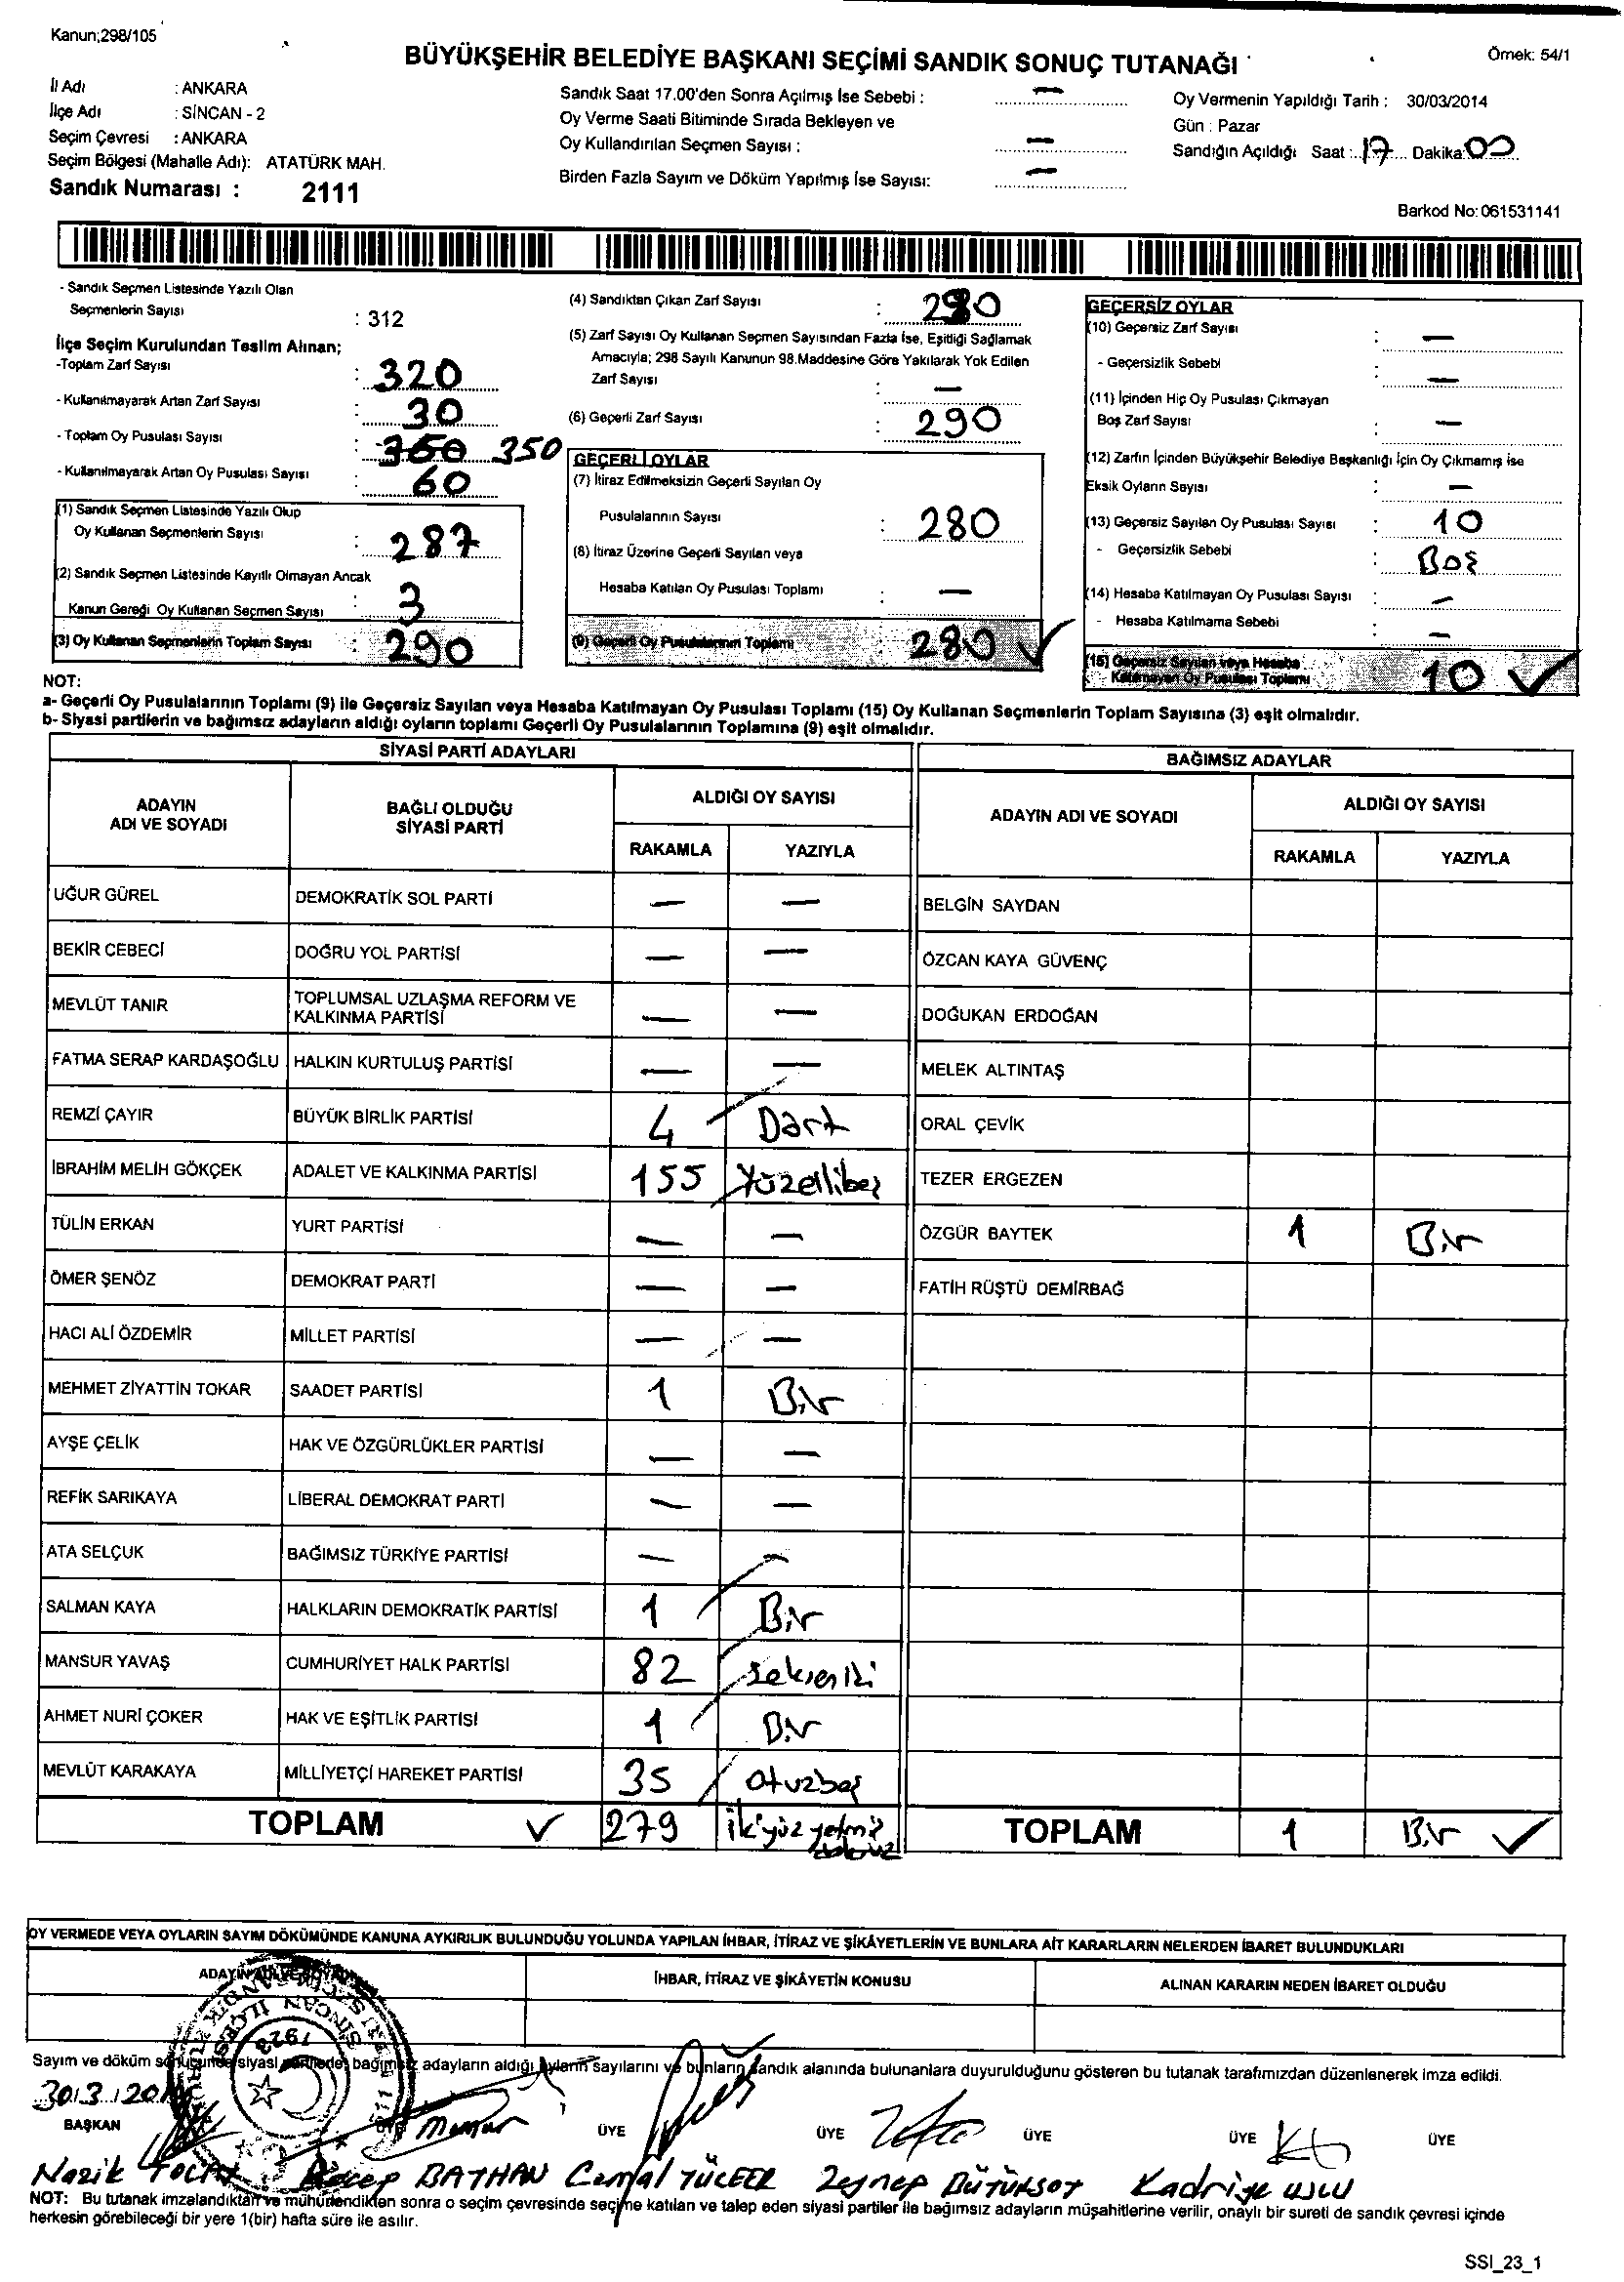 Kanun;298/105
BÜYÜKŞEHİR BELEDİYE BAŞKANI SEÇİMİ SANDIK SONUÇ TUTANAĞI
Örnek: 54/1
İl Adı : ANKARA
İlçe Adı : SİNCAN - 2
Seçim Çevresi : ANKARA
Seçim Bölgesi (Mahalle Adı): ATATÜRK MAH.
Sandık Numarası : 2111
Sandık Saat 17.00'den Sonra Açılmış İse Sebebi : —
Oy Verme Saati Bitiminde Sırada Bekleyen ve
Oy Kullandırılan Seçmen Sayısı : —
Birden Fazla Sayım ve Döküm Yapılmış İse Sayısı: —
Oy Vermenin Yapıldığı Tarih : 30/03/2014
Gün : Pazar
Sandığın Açıldığı Saat : 17 Dakika: 00
Barkod No: 061531141
- Sandık Seçmen Listesinde Yazılı Olan
Seçmenlerin Sayısı : 312
İlçe Seçim Kurulundan Teslim Alınan;
-Toplam Zarf Sayısı : 320
- Kullanılmayarak Artan Zarf Sayısı : 30
- Toplam Oy Pusulası Sayısı : 350
- Kullanılmayarak Artan Oy Pusulası Sayısı : 60
(1) Sandık Seçmen Listesinde Yazılı Olup
Oy Kullanan Seçmenlerin Sayısı : 287
(2) Sandık Seçmen Listesinde Kayıtlı Olmayan Ancak
Kanun Gereği Oy Kullanan Seçmen Sayısı : 3
(3) Oy Kullanan Seçmenlerin Toplam Sayısı : 290
(4) Sandıktan Çıkan Zarf Sayısı : 290
(5) Zarf Sayısı Oy Kullanan Seçmen Sayısından Fazla İse, Eşitliği Sağlamak
Amacıyla; 298 Sayılı Kanunun 98.Maddesine Göre Yakılarak Yok Edilen
Zarf Sayısı : —
(6) Geçerli Zarf Sayısı : 290
GEÇERLİ OYLAR
(7) İtiraz Edilmeksizin Geçerli Sayılan Oy
Pusulalarının Sayısı : 280
(8) İtiraz Üzerine Geçerli Sayılan veya
Hesaba Katılan Oy Pusulası Toplamı : —
(9) Geçerli Oy Pusulalarının Toplamı : 280
GEÇERSİZ OYLAR
(10) Geçersiz Zarf Sayısı : —
- Geçersizlik Sebebi : —
(11) İçinden Hiç Oy Pusulası Çıkmayan
Boş Zarf Sayısı : —
(12) Zarfın İçinden Büyükşehir Belediye Başkanlığı İçin Oy Çıkmamış ise
Eksik Oyların Sayısı : —
(13) Geçersiz Sayılan Oy Pusulası Sayısı : 10
- Geçersizlik Sebebi : Boş
(14) Hesaba Katılmayan Oy Pusulası Sayısı : —
- Hesaba Katılmama Sebebi : —
(15) Geçersiz Sayılan veya Hesaba
Katılmayan Oy Pusulası Toplamı : 10
NOT:
a- Geçerli Oy Pusulalarının Toplamı (9) ile Geçersiz Sayılan veya Hesaba Katılmayan Oy Pusulası Toplamı (15) Oy Kullanan Seçmenlerin Toplam Sayısına (3) eşit olmalıdır.
b- Siyasi partilerin ve bağımsız adayların aldığı oyların toplamı Geçerli Oy Pusulalarının Toplamına (9) eşit olmalıdır.
SİYASİ PARTİ ADAYLARI
ADAYIN ADI VE SOYADI
BAĞLI OLDUĞU SİYASİ PARTİ
ALDIĞI OY SAYISI
RAKAMLA YAZIYLA
UĞUR GÜREL DEMOKRATİK SOL PARTİ — —
BEKİR CEBECİ DOĞRU YOL PARTİSİ — —
MEVLÜT TANIR TOPLUMSAL UZLAŞMA REFORM VE KALKINMA PARTİSİ — —
FATMA SERAP KARDAŞOĞLU HALKIN KURTULUŞ PARTİSİ — —
REMZİ ÇAYIR BÜYÜK BİRLİK PARTİSİ 4 Dört
İBRAHİM MELİH GÖKÇEK ADALET VE KALKINMA PARTİSİ 155 Yüzellibeş
TÜLİN ERKAN YURT PARTİSİ — —
ÖMER ŞENÖZ DEMOKRAT PARTİ — —
HACI ALİ ÖZDEMİR MİLLET PARTİSİ — —
MEHMET ZİYATTİN TOKAR SAADET PARTİSİ 1 Bir
AYŞE ÇELİK HAK VE ÖZGÜRLÜKLER PARTİSİ — —
REFİK SARIKAYA LİBERAL DEMOKRAT PARTİ — —
ATA SELÇUK BAĞIMSIZ TÜRKİYE PARTİSİ — —
SALMAN KAYA HALKLARIN DEMOKRATİK PARTİSİ 1 Bir
MANSUR YAVAŞ CUMHURİYET HALK PARTİSİ 82 Seksenİki
AHMET NURİ ÇOKER HAK VE EŞİTLİK PARTİSİ 1 Bir
MEVLÜT KARAKAYA MİLLİYETÇİ HAREKET PARTİSİ 35 otuzbeş
TOPLAM 279 ikiyüz yetmiş dokuz
BAĞIMSIZ ADAYLAR
ADAYIN ADI VE SOYADI
ALDIĞI OY SAYISI
RAKAMLA YAZIYLA
BELGİN SAYDAN
ÖZCAN KAYA GÜVENÇ
DOĞUKAN ERDOĞAN
MELEK ALTINTAŞ
ORAL ÇEVİK
TEZER ERGEZEN
ÖZGÜR BAYTEK 1 Bir
FATİH RÜŞTÜ DEMİRBAĞ
TOPLAM 1 Bir
OY VERMEDE VEYA OYLARIN SAYIM DÖKÜMÜNDE KANUNA AYKIRILIK BULUNDUĞU YOLUNDA YAPILAN İHBAR, İTİRAZ VE ŞİKÂYETLERİN VE BUNLARA AİT KARARLARIN NELERDEN İBARET BULUNDUKLARI
ADAYIN ADI VE SOYADI
İHBAR, İTİRAZ VE ŞİKÂYETİN KONUSU
ALINAN KARARIN NEDEN İBARET OLDUĞU
SİNCAN İLÇESİ
1923
Sayım ve döküm sonucunda siyasi partilerle, bağımsız adayların aldığı oyların sayılarını ve bunların sandık alanında bulunanlara duyurulduğunu gösteren bu tutanak tarafımızdan düzenlenerek imza edildi.
30.3.2014
BAŞKAN ÜYE ÜYE ÜYE ÜYE ÜYE
Nazik Recep BATHAN Cemal YÜCEER Zeynep Kadriye
NOT: Bu tutanak imzalandıktan ve mühürlendikten sonra o seçim çevresinde seçime katılan ve talep eden siyasi partiler ile bağımsız adayların müşahitlerine verilir, onaylı bir sureti de sandık çevresi içinde
herkesin görebileceği bir yere 1(bir) hafta süre ile asılır.
SSI_23_1